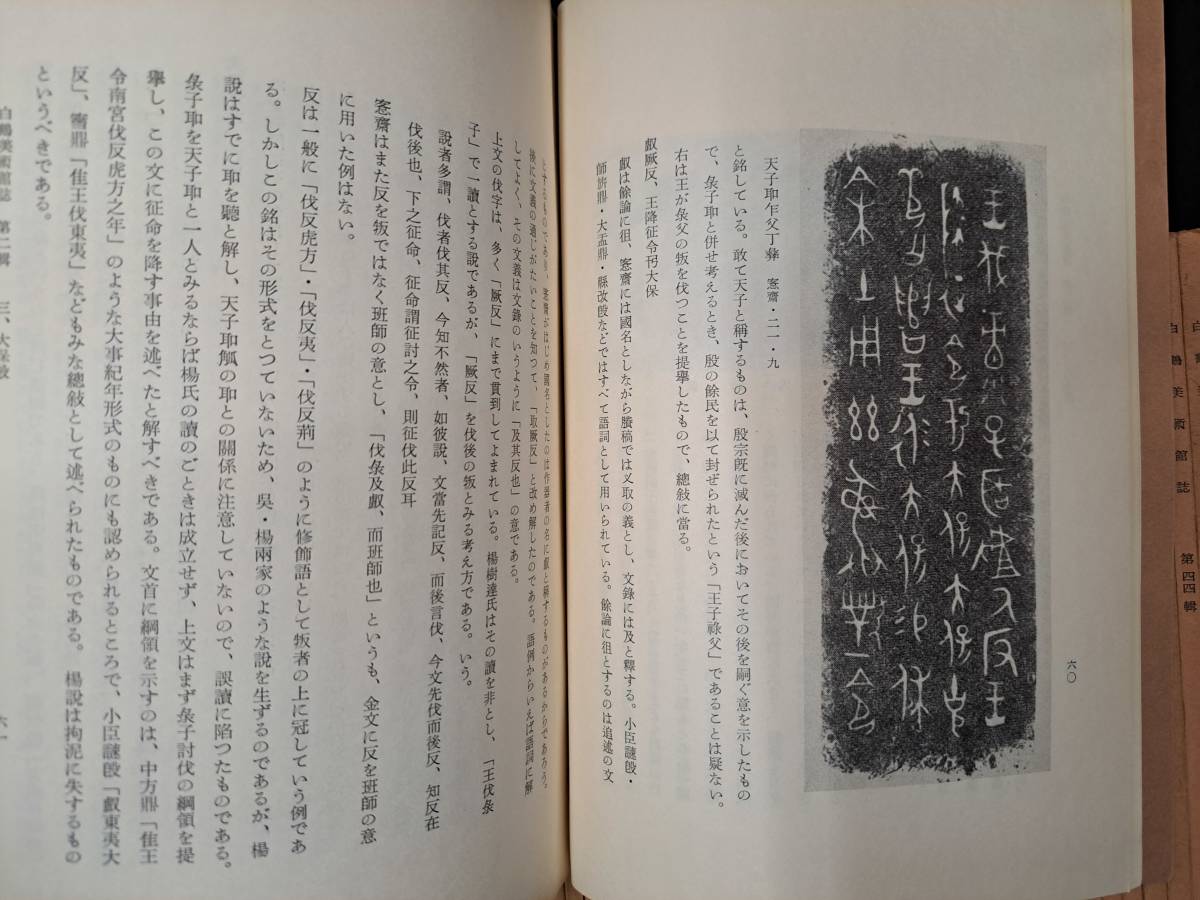 六〇
王伐彔子𦔻𠭯氒反王
降征令于大保大保克
天子𦔻乍父丁彝　愙齋・二一・九
と銘している。敢て天子と稱するものは、殷宗旣に減んだ後においてその後を嗣ぐ意を示したもの
で、彔子𦔻と併せ考えるとき、殷の餘民を以て封ぜられたという「王子祿父」であることは疑ない。
右は王が彔父の叛を伐つことを提擧したもので、總敍に當る。
𠭯厥反、王降征令𢓊大保
𠭯は餘論に徂、愙齋には國名としながら賸稿では㕛取の義とし、文錄には及と釋する。小臣謎𣪘・
師旂鼎・大盂鼎・縣改𣪘などではすべて語詞として用いられている。餘論に徂とするのは追述の文
とするものであり、愙齋がはじめ國名としたのは作器者の名に𠭯と稱するものがあるからであろう。
後に文義の通じがたいことを知つて、「取厥反」と改め解したのである。語例からいえば語詞に解
してよく、その文義は文錄のいうように「及其反也」の意である。
上文の伐字は、多く「厥反」にまで貫到してよまれている。楊樹達氏はその讀を非とし、「王伐彔
子」で一讀とする說であるが、「厥反」を伐後の叛とみる考え方である。いう。
說者多謂、伐者伐其反、今知不然者、如彼說、文當先記反、而後言伐、今文先伐而後反、知反在
伐後也、下之征命、征命謂征討之令、則征伐此反耳
愙齋はまた反を叛ではなく班師の意とし、「伐彔及𠭯、而班師也」というも、金文に反を班師の意
に用いた例はない。
反は一般に「伐反虎方」・「伐反夷」・「伐反荊」のように修飾語として叛者の上に冠していう例であ
る。しかしこの銘はその形式をとつていないため、吳・楊兩家のような說を生ずるのであるが、楊
說はすでに𦔻を聽と解し、天子𦔻觚の𦔻との關係に注意していないので、誤讀に陷つたものである。
彔子𦔻を天子𦔻と一人とみるならば楊氏の讀のごときは成立せず、上文はまず彔子討伐の綱領を提
擧し、この文に征命を降す事由を述べたと解すべきである。文首に綱領を示すのは、中方鼎「隹王
令南宮伐反虎方之年」のような大事紀年形式のものにも認められるところで、小臣謎𣪘「𠭯東夷大
反」、𩁹鼎「隹王伐東夷」などもみな總敍として述べられたものである。楊說は拘泥に失するもの
というべきである。
白鶴美術館誌　第二輯　三、大保𣪘　六一
白鶴美術館誌　第四四輯